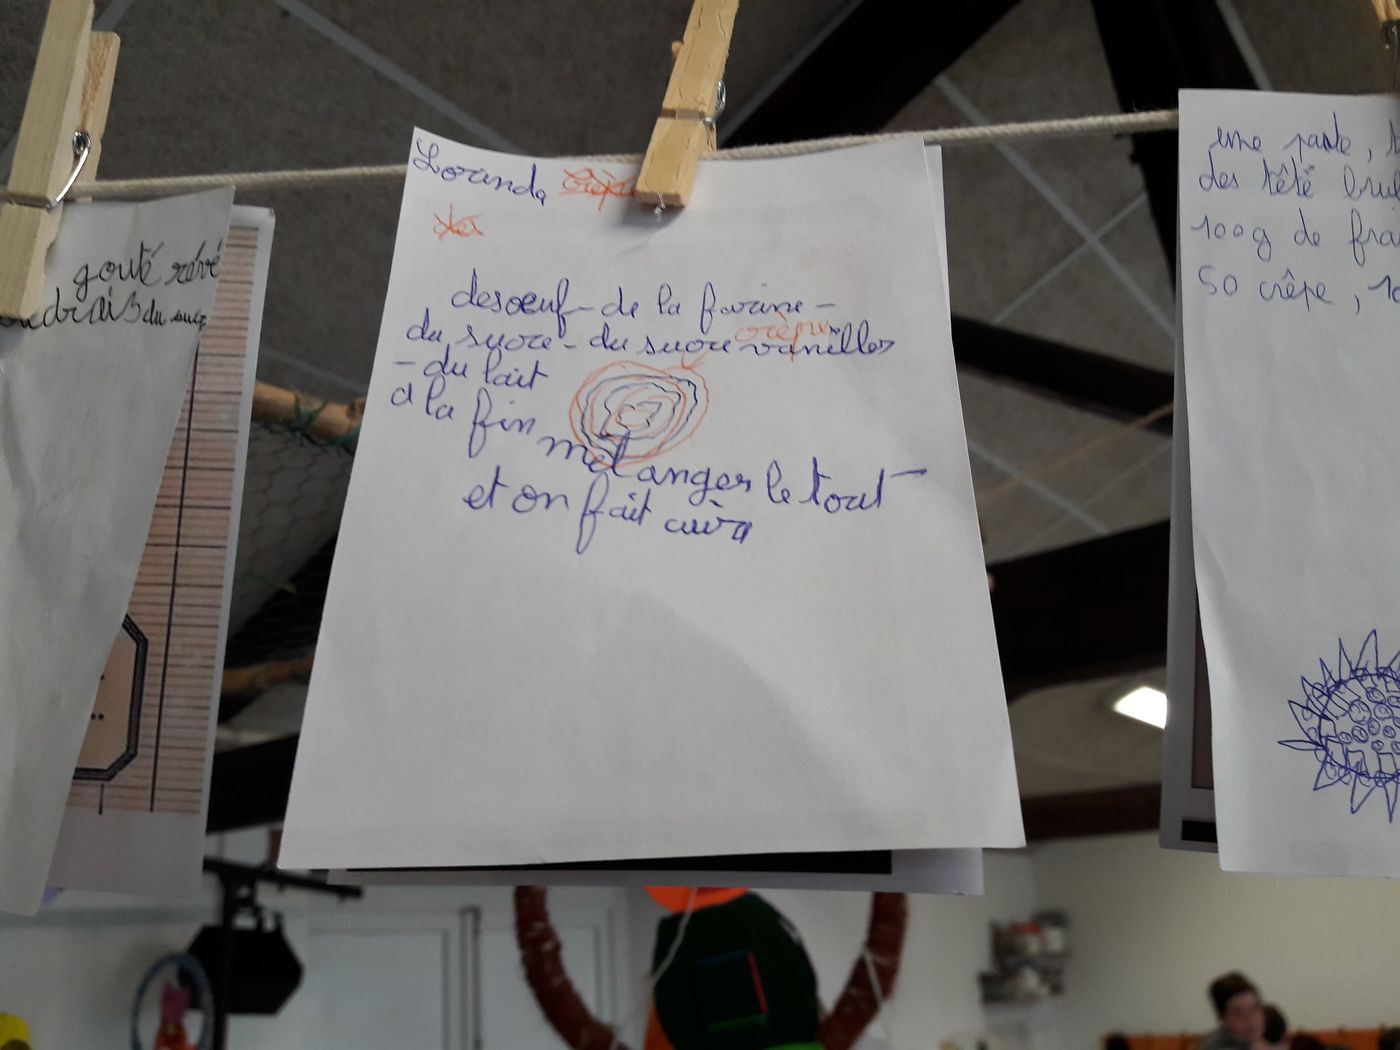 gouté rêvé
du
Loranda
desoeuf - de la farine -
du sucre - du sucre vanilles
crêpe
- du lait
a la fin
mélanger le tout
et on fait cuir
une paute,
des tété brul
100g de fra
50 crêpe, 10